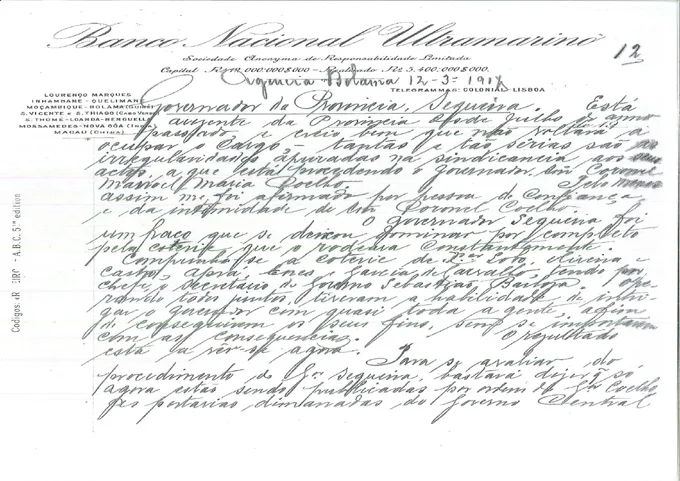 Banco Nacional Ultramarino
12
Sociedade Anonyma de Responsabilidade Limitada
Capital Rs 12.000:000$000 - Realisado Rs 5.400:000$000.
Agencia Bolama 12-3-191
TELEGRAMMAS: COLONIAL-LISBOA
LOURENÇO MARQUES
INHAMBANE - QUELIMANE
MOÇAMBIQUE - BOLAMA (GUINÉ)
S. VICENTE E S. THIAGO (CABO VERDE)
S. THOMÉ - LOANDA - BENGUELLA
MOSSAMEDES - NOVA GÔA (INDIA)
MACAU (CHINA)
Codigos: A.B.C. 5th edition
Governador da Provincia, Sequeira. Está
ausente da Provincia desde Julho do anno
passado, e creio bem que não voltará a
occupar o cargo - tantas e tão sérias são as
irregularidades apuradas na sindicancia aos seus
actos, a que está procedendo o Governador Coronel
Manoel Maria Coelho. Pelo menos
assim me foi afirmado por pessoa de confiança
e da intimidade de Coronel Coelho.
O Governador Sequeira foi
um fraco que se deixou dominar por completo
pela coterie que o rodeava constantemente.
Compunha-se a coterie de Soto, Oliveira e
Castro, e Garcia de Carvalho, sendo por
chefe o secretario do Governo Sebastião Barbosa. Ope
rando todos juntos, tiveram a habilidade de intri
gar o Governador com quasi toda a gente, afim
de conseguirem os seus fins, sem se importarem
com as consequencias. O resultado
está a vêr-se agora.
Para se avaliar do
procedimento do Snr Sequeira, bastará dizer q só
agora estão sendo publicadas por ordem do Snr Coelho
portarias dimanadas do Governo Central